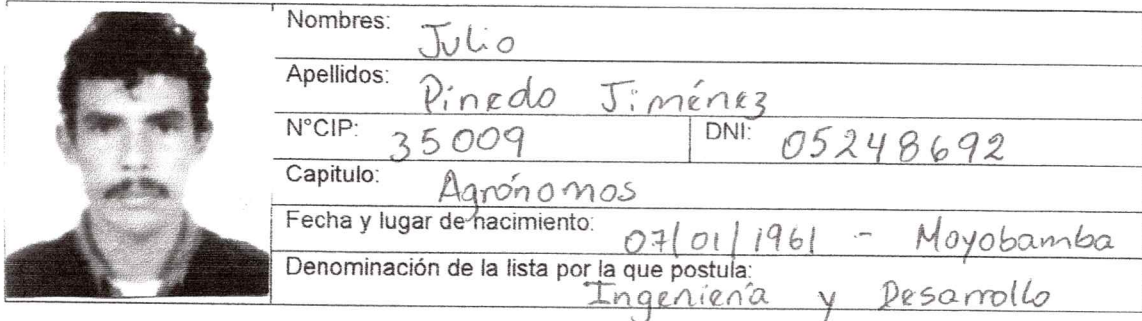 Nombres: Julio
Apellidos: Pinedo Jiménez
N°CIP: 35009 DNI: 05248692
Capitulo: Agrónomos
Fecha y lugar de nacimiento: 07/01/1961 - Moyobamba
Denominación de la lista por la que postula:
Ingeniería y Desarrollo